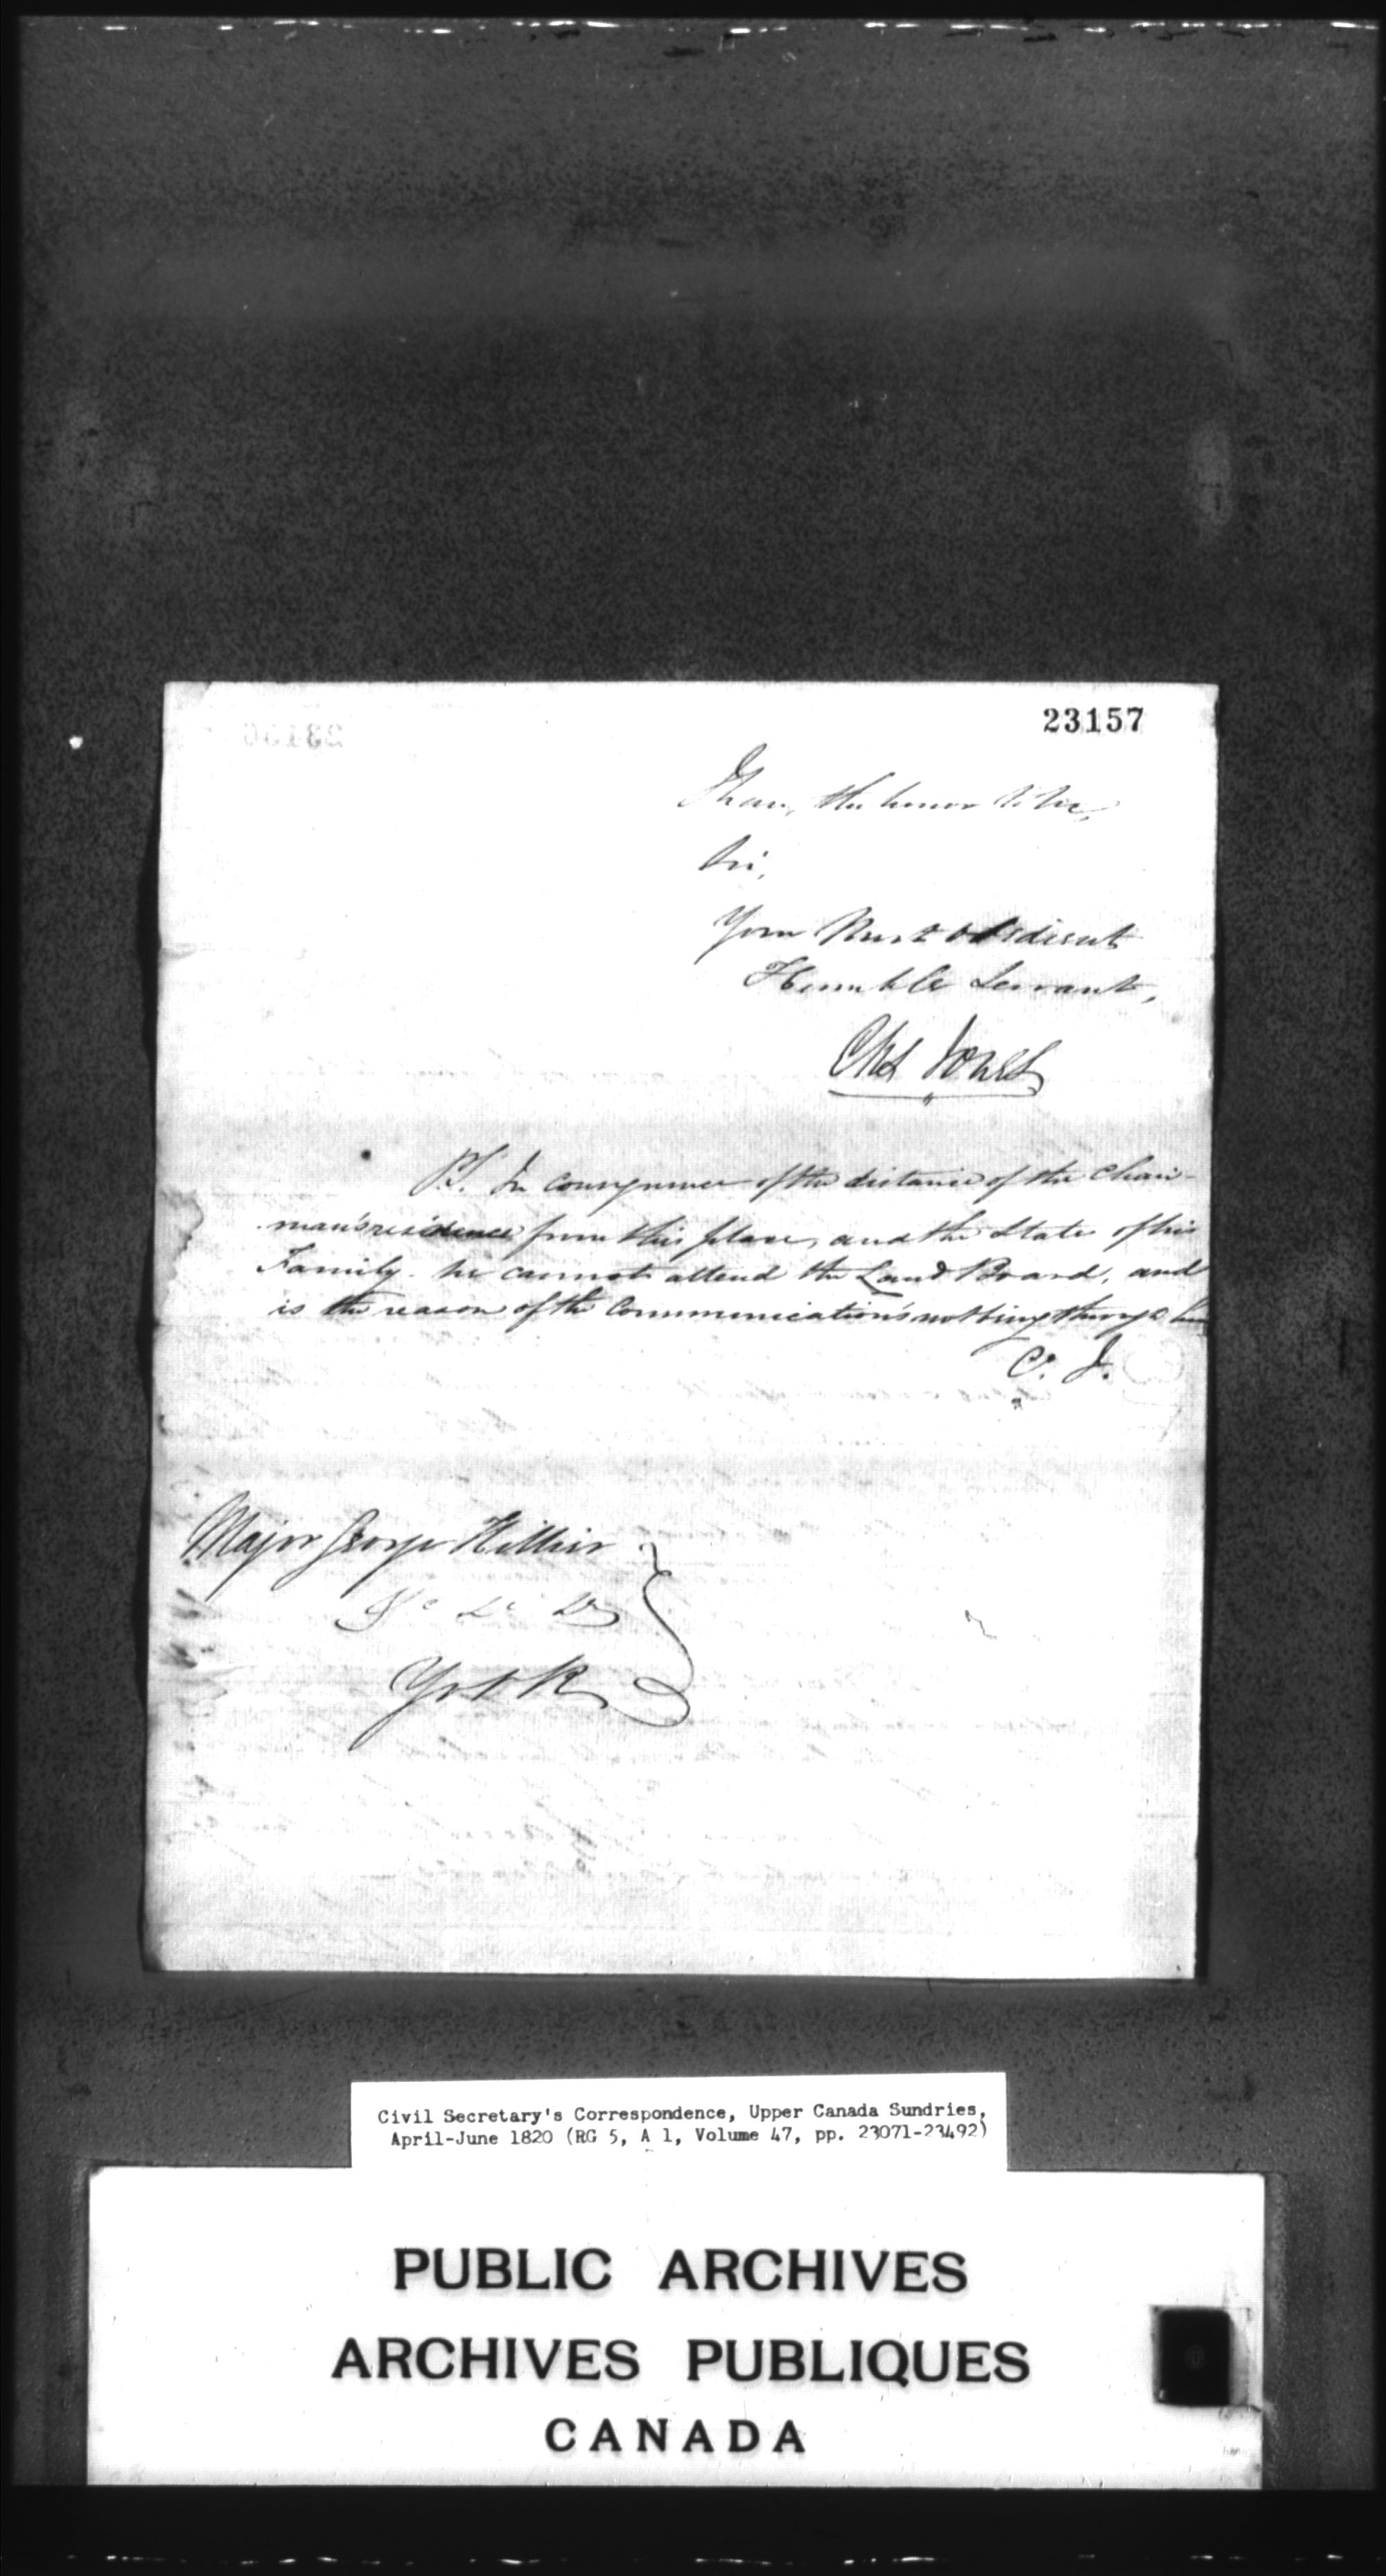 23157
I have the honor to be,
Sir,
Your Most obedient
Humble Servant,
Chs Jones
P.S. In consequence of the distance of the Chair-
man's residence from this place, and the State of his
Family. he cannot attend the Land Board, and
is the reason of the Communication's not being through him
C. J.
Major George Hillier
&c &c &c
York
Civil Secretary's Correspondence, Upper Canada Sundries,
April-June 1820 (RG 5, A 1, Volume 47, pp. 23071-23492)
PUBLIC ARCHIVES
ARCHIVES PUBLIQUES
CANADA